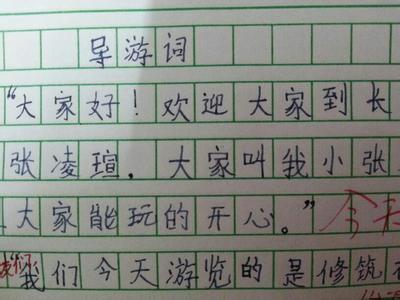 导游词
“大家好！欢迎大家到长
张凌瑄。大家叫我小张
大家能玩的开心。”今天
我们今天游览的是修筑